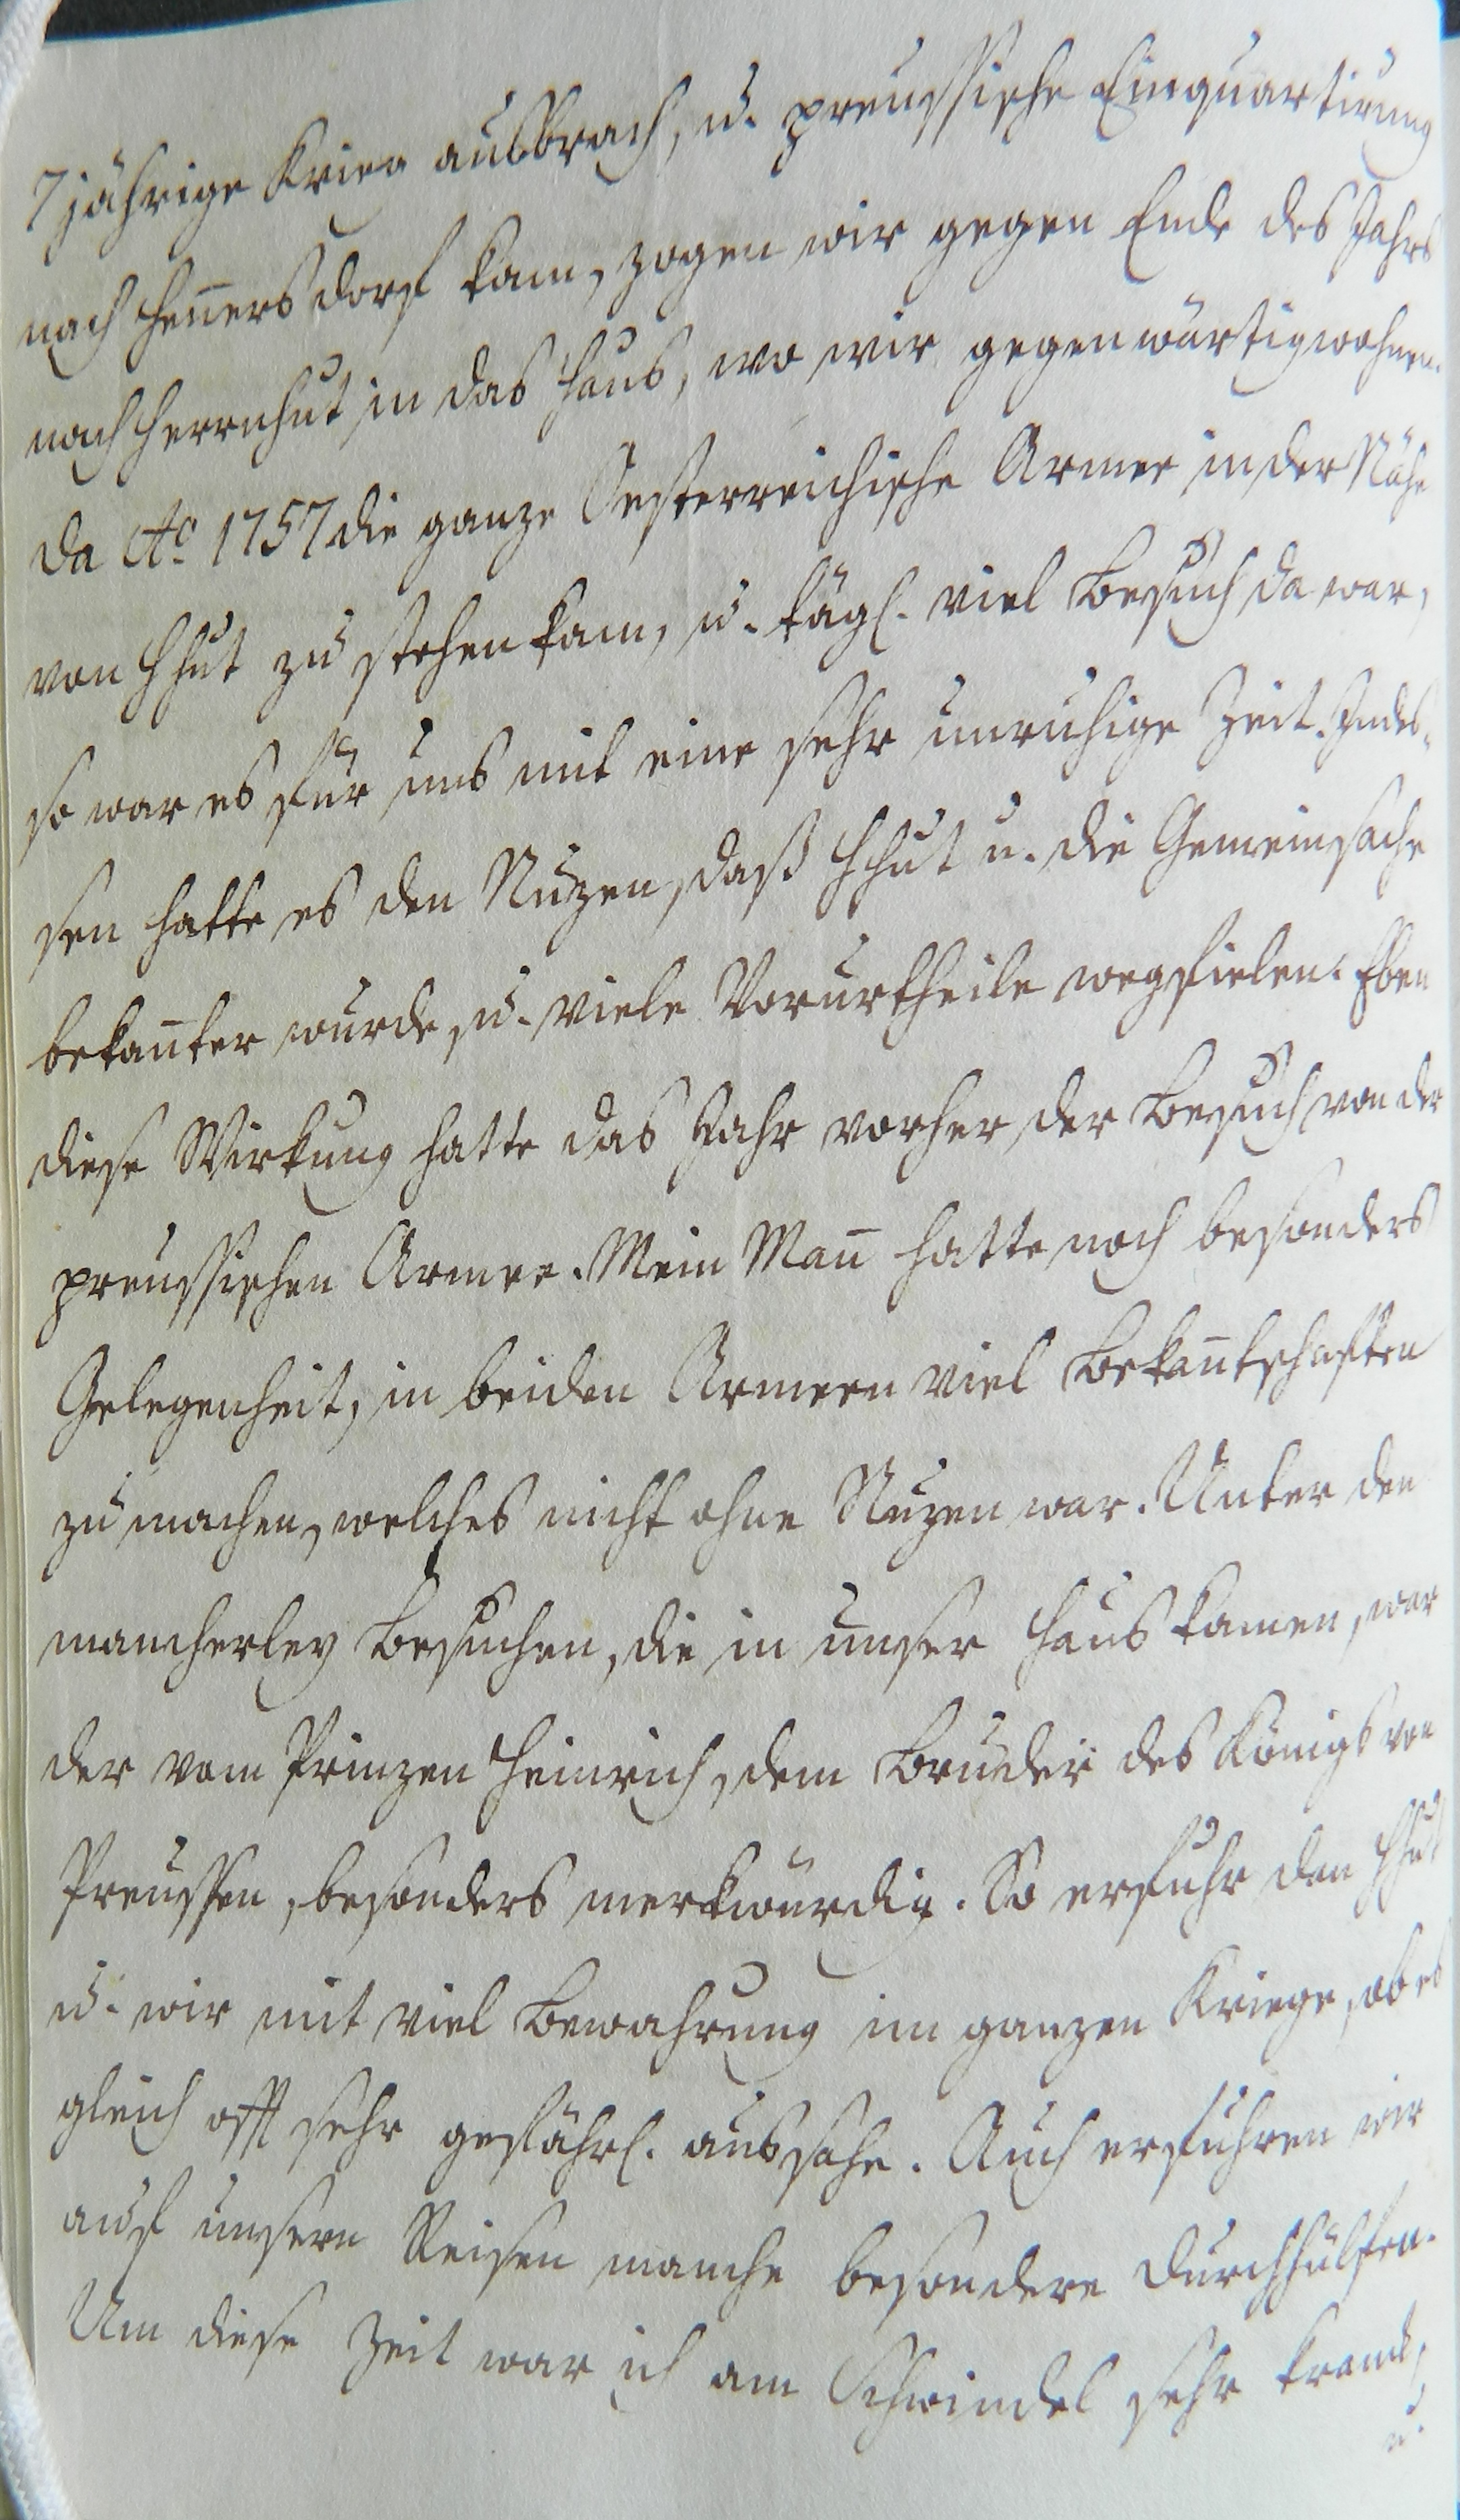 7jährige Krieg ausbrach, u. preussische Einquartirung
nach Hen̄ersdorf kam, zogen wir gegen Ende des Jahrs
nach Herrnhut in das Haus, wo wir gegenwärtig wohnen.
Da Ao. 1757 die ganze Oesterreichische Armee in der Nähe
von Hhut zu stehen kam, u. tägl. viel Besuch da war,
so war es für uns mit eine sehr unruhige Zeit. Indes-
sen hatte es den Nuzen, daß Hhut u. die Gemeinsache
bekan̄ter wurde, u. viele Vorurtheile wegfielen. Eben
diese Wirkung hatte das Jahr vorher der Besuch von der
preussischen Armee. Mein Man̄ hatte noch besonders
Gelegenheit, in beiden Armeen viel Bekan̄tschaften
zu machen, welches nicht ohne Nuzen war. Unter den
mancherley Besuchen, die in unser Haus kamen, war
der vom Prinzen Heinrich, dem Bruder des Königs von
Preussen, besonders merkwürdig. So erfuhr den Hhut
u. wir mit viel Bewahrung im ganzen Kriege, ob es
gleich offt sehr gefährl. aussahe. Auch erfuhren wir
auf unsern Reisen manche besondere Durchhülfen.
Um diese Zeit war ich am Schwindel sehr kranck,
u.